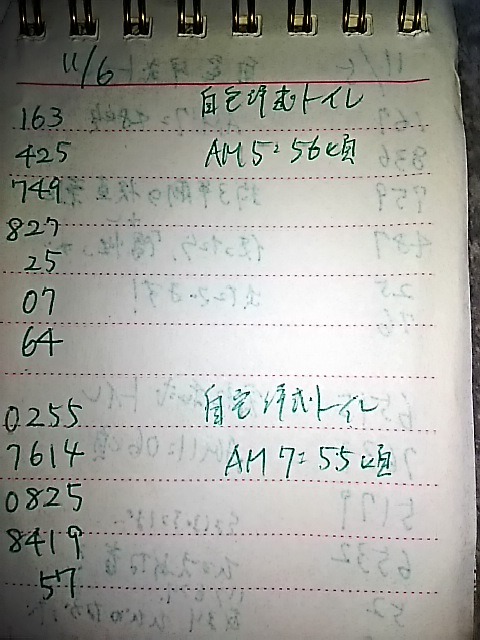 11/6
163 自宅洋式トイレ
425 AM5:56頃
749
827
25
07
64
0255 自宅洋式トイレ
7614 AM7:55頃
0825
8419
57